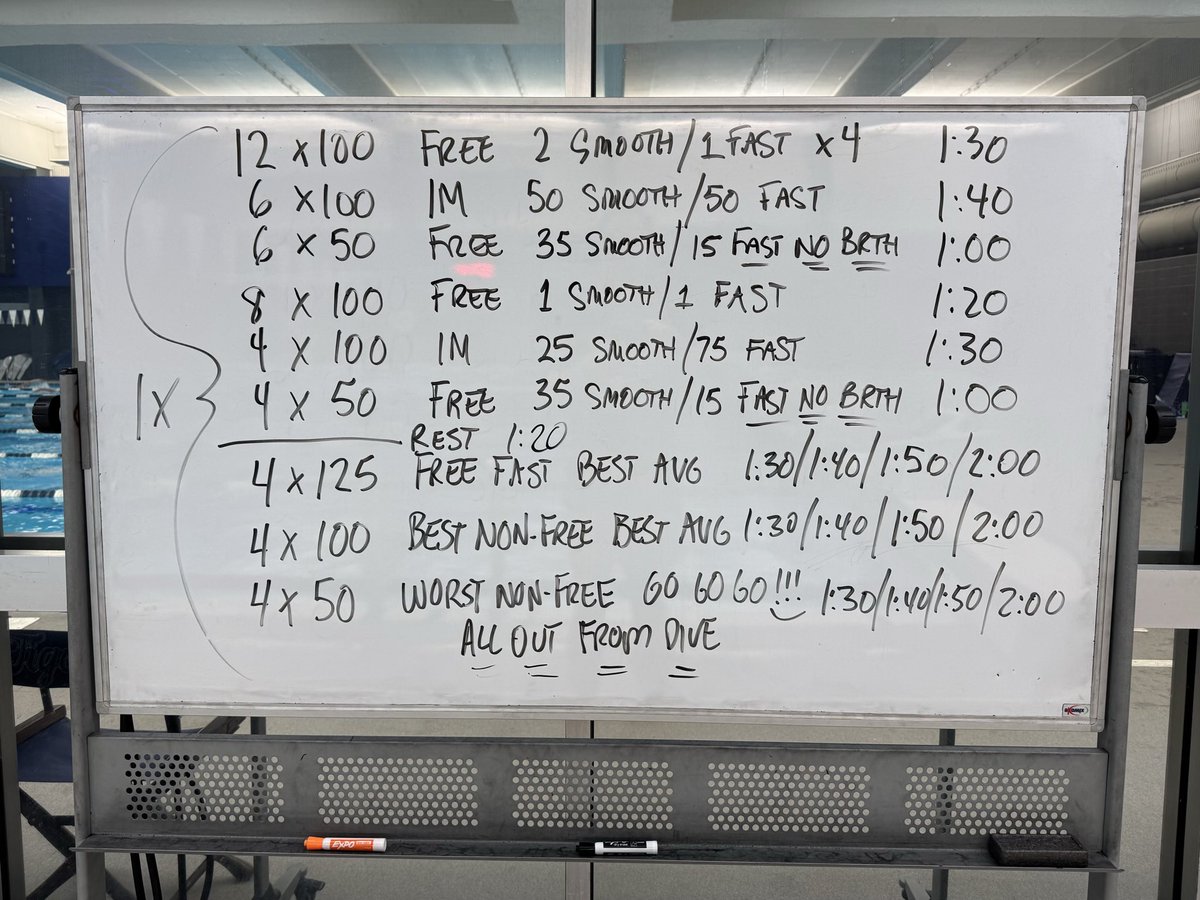 12 x 100 FREE 2 SMOOTH/1 FAST x4 1:30
6 x 100 IM 50 SMOOTH/50 FAST 1:40
6 x 50 FREE 35 SMOOTH/15 FAST NO BRTH 1:00
8 x 100 FREE 1 SMOOTH/1 FAST 1:20
4 x 100 IM 25 SMOOTH/75 FAST 1:30
1X
4 x 50 FREE 35 SMOOTH/15 FAST NO BRTH 1:00
REST 1:20
4 x 125 FREE FAST BEST AVG 1:30/1:40/1:50/2:00
4 x 100 BEST NON-FREE BEST AVG 1:30/1:40/1:50/2:00
4 x 50 WORST NON-FREE GO GO GO!!! 1:30/1:40/1:50/2:00
ALL OUT FROM DIVE
EXPO